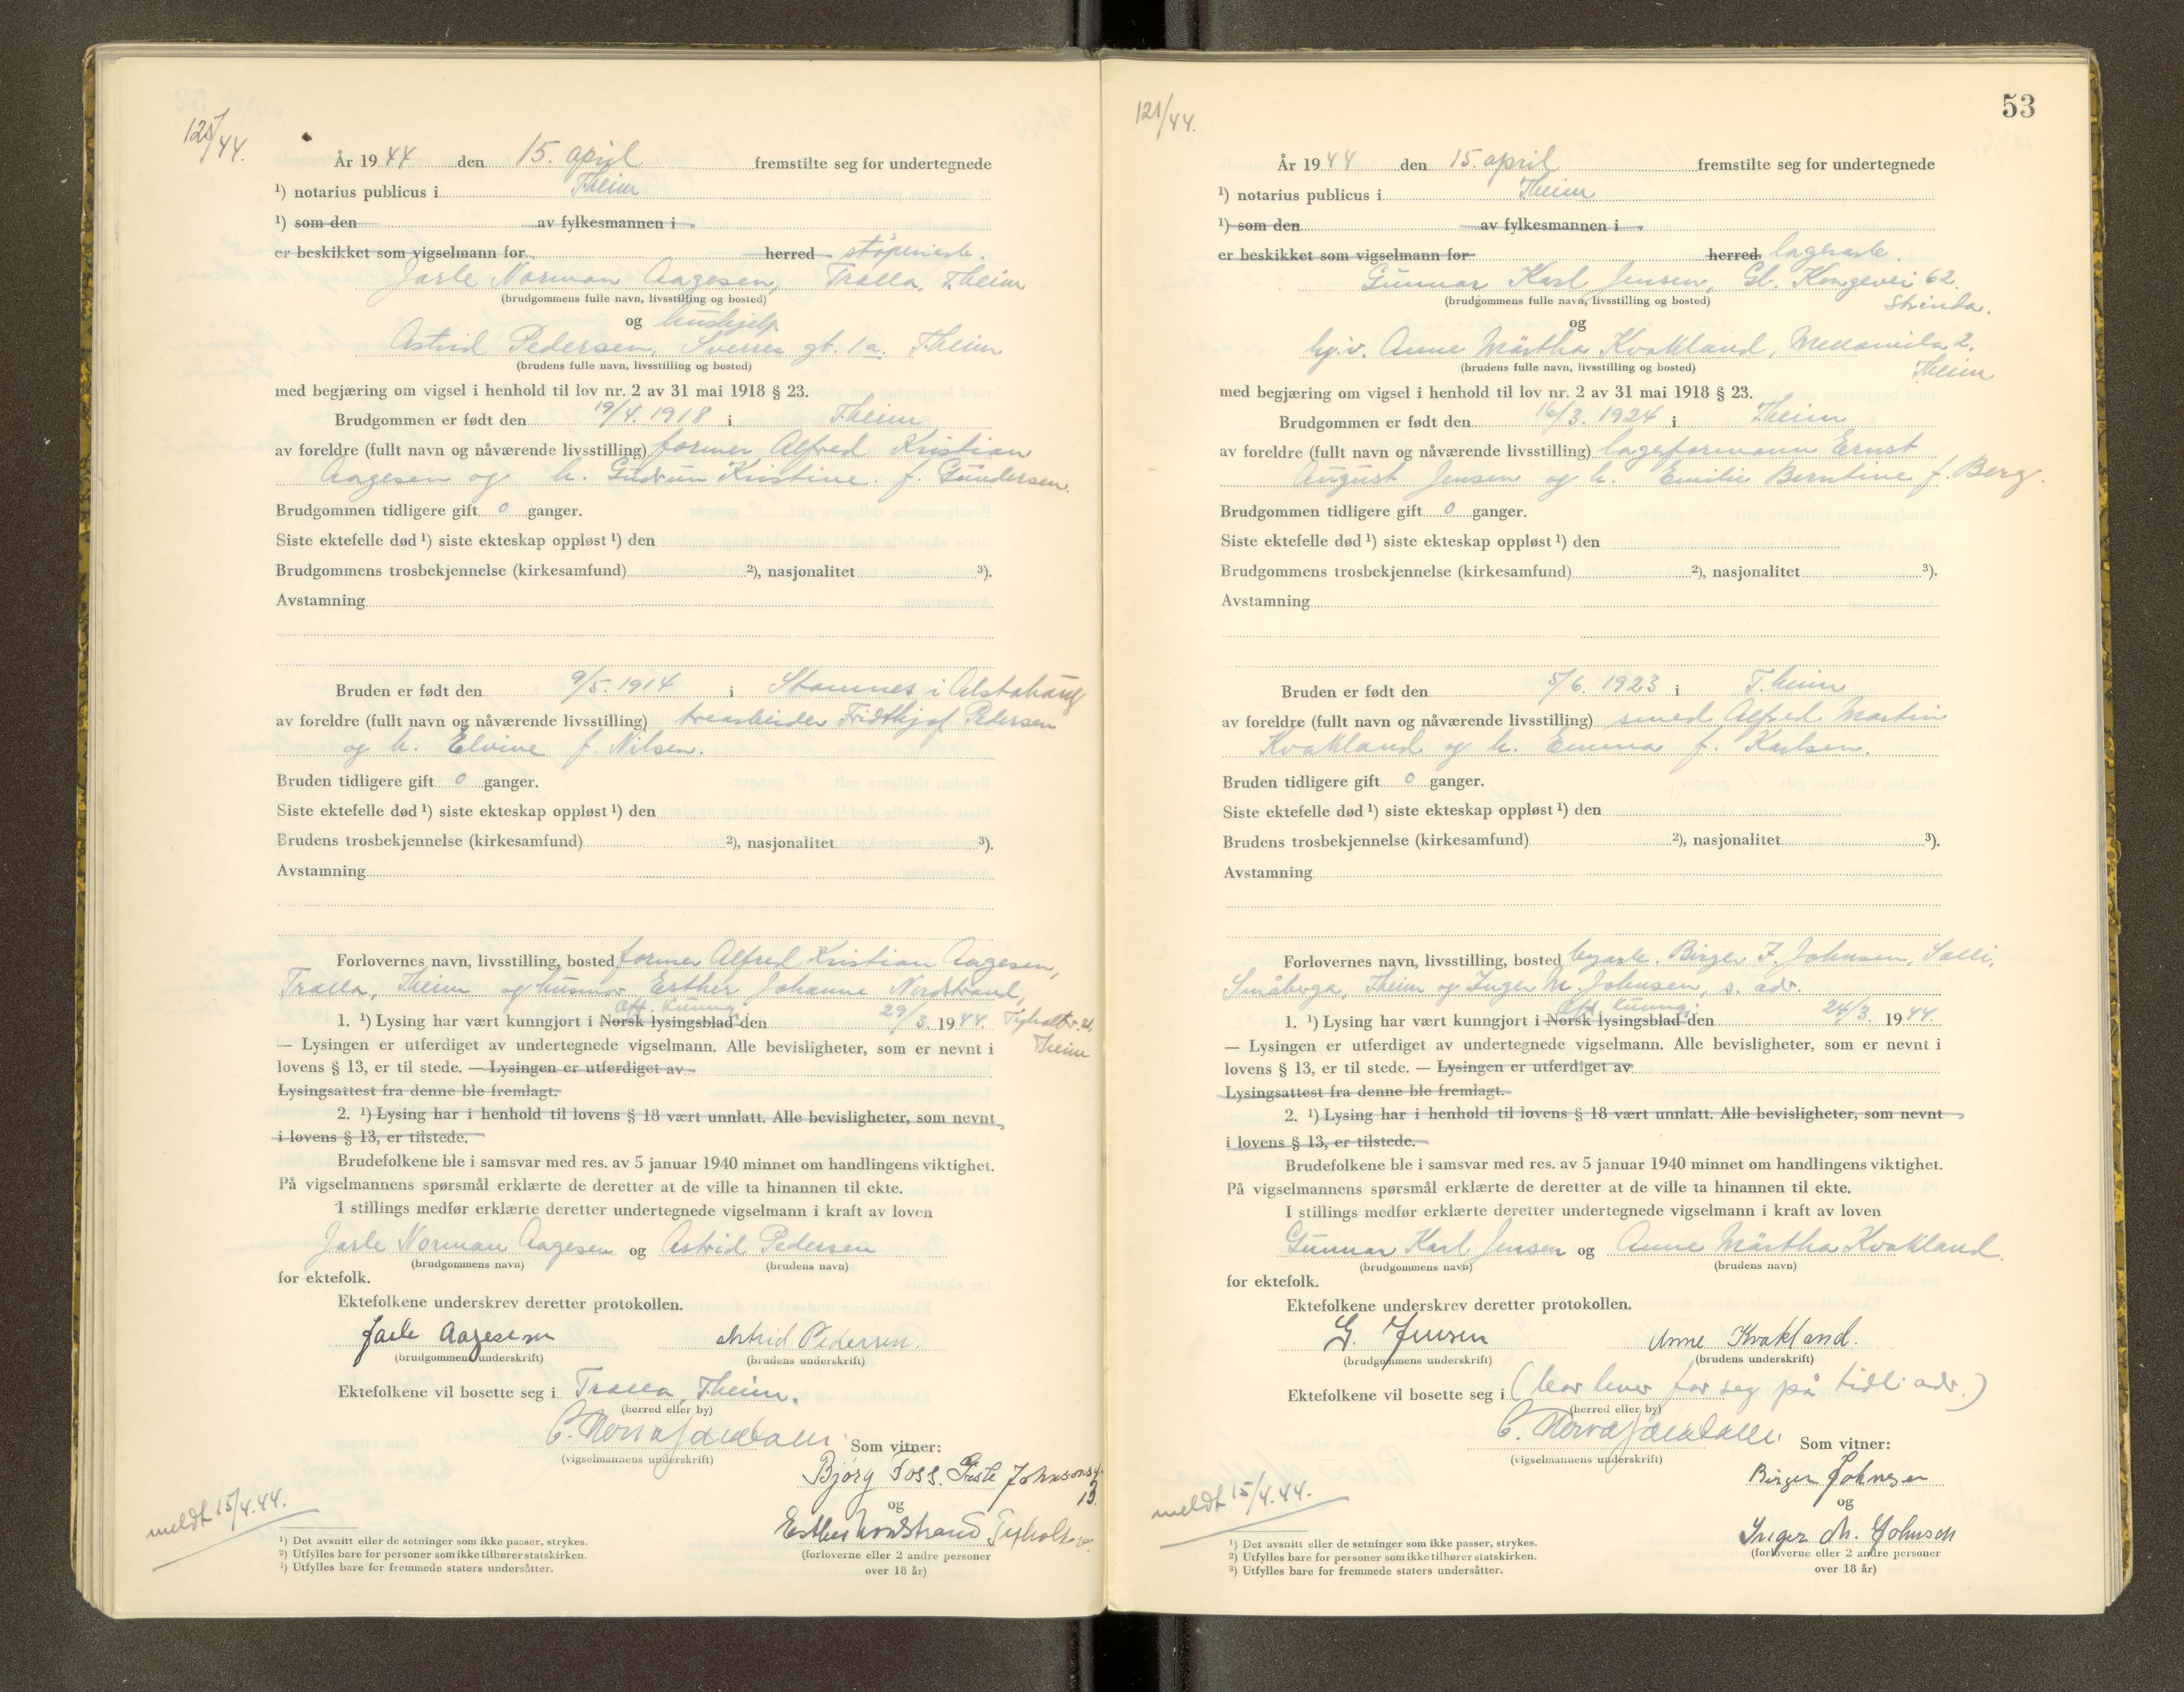 125/44.
År 1944 den 15. april fremstilte seg for undertegnede
¹) notarius publicus i T.heim
¹) som den av fylkesmannen i
er beskikket som vigselmann for herred støperiarb.
Jarle Norman Aagesen, Tralla, T.heim
(brudgommens fulle navn, livsstilling og bosted)
og hushjelp
Astrid Pedersen, Sverres gt. 1a. T.heim
(brudens fulle navn, livsstilling og bosted)
med begjæring om vigsel i henhold til lov nr. 2 av 31 mai 1918 § 23.
Brudgommen er født den 19/4. 1918 i T.heim
av foreldre (fullt navn og nåværende livsstilling) former Alfred Kristian
Aagesen og h. Gudrun Kristine f. Gundersen.
Brudgommen tidligere gift 0 ganger.
Siste ektefelle død ¹) siste ekteskap oppløst ¹) den
Brudgommens trosbekjennelse (kirkesamfund) ²), nasjonalitet ³).
Avstamning
Bruden er født den 9/5. 1914 i Stamnes i Alstahaug
av foreldre (fullt navn og nåværende livsstilling) trearbeider Fridthjof Pedersen
og h. Elvine f. Nilsen.
Bruden tidligere gift 0 ganger.
Siste ektefelle død ¹) siste ekteskap oppløst ¹) den
Brudens trosbekjennelse (kirkesamfund) ²), nasjonalitet ³).
Avstamning
Forlovernes navn, livsstilling, bosted former Alfred Kristian Aagesen,
Tralla, T.heim og husmor Esther Johanne Nordstrand,
Off. kunng.
1. ¹) Lysing har vært kunngjort i Norsk lysingsblad den 29/3. 1944. Tyholtv. 21,
T.heim
— Lysingen er utferdiget av undertegnede vigselmann. Alle bevisligheter, som er nevnt i
lovens § 13, er til stede. — Lysingen er utferdiget av
Lysingsattest fra denne ble fremlagt.
2. ¹) Lysing har i henhold til lovens § 18 vært unnlatt. Alle bevisligheter, som nevnt
i lovens § 13, er tilstede.
Brudefolkene ble i samsvar med res. av 5 januar 1940 minnet om handlingens viktighet.
På vigselmannens spørsmål erklærte de deretter at de ville ta hinannen til ekte.
I stillings medfør erklærte deretter undertegnede vigselmann i kraft av loven
Jarle Norman Aagesen og Astrid Pedersen
(brudgommens navn) (brudens navn)
for ektefolk.
Ektefolkene underskrev deretter protokollen.
Jarle Aagesen Astrid Pedersen.
(brudgommens underskrift) (brudens underskrift)
Ektefolkene vil bosette seg i Tralla, T.heim.
(herred eller by)
Som vitner:
(vigselmannens underskrift)
Bjørg Foss. Johnsons
13.
og
Esther Nordstrand Tyholtv.
(forloverne eller 2 andre personer
over 18 år)
meldt 15/4.44.
¹) Det avsnitt eller de setninger som ikke passer, strykes.
²) Utfylles bare for personer som ikke tilhører statskirken.
³) Utfylles bare for fremmede staters undersåtter.
53
121/44.
År 1944 den 15. april fremstilte seg for undertegnede
¹) notarius publicus i T.heim
¹) som den av fylkesmannen i
er beskikket som vigselmann for herred lagerarb.
Gunnar Karl Jensen, Gl. Kongevei 62.
Strinda.
(brudgommens fulle navn, livsstilling og bosted)
og
hj.v. Anne Märtha Kvakland, Mellomila 2.
T.heim
(brudens fulle navn, livsstilling og bosted)
med begjæring om vigsel i henhold til lov nr. 2 av 31 mai 1918 § 23.
Brudgommen er født den 16/3. 1924 i T.heim
av foreldre (fullt navn og nåværende livsstilling) lagerformann Ernst
August Jensen og h. Emilie Berntine f. Berg.
Brudgommen tidligere gift 0 ganger.
Siste ektefelle død ¹) siste ekteskap oppløst ¹) den
Brudgommens trosbekjennelse (kirkesamfund) ²), nasjonalitet ³).
Avstamning
Bruden er født den 5/6. 1923 i T.heim
av foreldre (fullt navn og nåværende livsstilling) smed Alfred Martin
Kvakland og h. Emma f. Karlsen.
Bruden tidligere gift 0 ganger.
Siste ektefelle død ¹) siste ekteskap oppløst ¹) den
Brudens trosbekjennelse (kirkesamfund) ²), nasjonalitet ³).
Avstamning
Forlovernes navn, livsstilling, bosted Birger F. Johnsen,
Småberga, T.heim og Inger M. Johnsen, s. adr.
Off. kunng.
1. ¹) Lysing har vært kunngjort i Norsk lysingsblad den 24/3. 1944.
— Lysingen er utferdiget av undertegnede vigselmann. Alle bevisligheter, som er nevnt i
lovens § 13, er til stede. — Lysingen er utferdiget av
Lysingsattest fra denne ble fremlagt.
2. ¹) Lysing har i henhold til lovens § 18 vært unnlatt. Alle bevisligheter, som nevnt
i lovens § 13, er tilstede.
Brudefolkene ble i samsvar med res. av 5 januar 1940 minnet om handlingens viktighet.
På vigselmannens spørsmål erklærte de deretter at de ville ta hinannen til ekte.
I stillings medfør erklærte deretter undertegnede vigselmann i kraft av loven
Gunnar Karl Jensen og Anne Märtha Kvakland.
(brudgommens navn) (brudens navn)
for ektefolk.
Ektefolkene underskrev deretter protokollen.
G. Jensen Anne Kvakland.
(brudgommens underskrift) (brudens underskrift)
Ektefolkene vil bosette seg i (bor hver for seg på tidl. adr.)
(herred eller by)
Som vitner:
(vigselmannens underskrift)
Birger Johnsen
og
Inger M. Johnsen
(forloverne eller 2 andre personer
over 18 år)
meldt 15/4.44.
¹) Det avsnitt eller de setninger som ikke passer, strykes.
²) Utfylles bare for personer som ikke tilhører statskirken.
³) Utfylles bare for fremmede staters undersåtter.